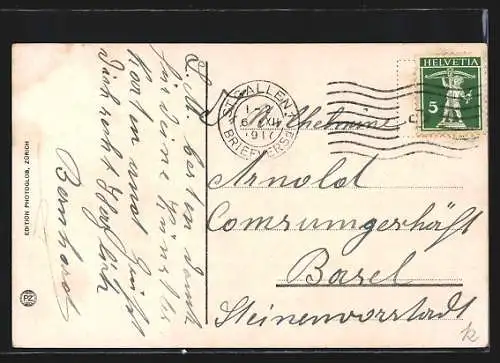 EDITION PHOTOGLOB, ZÜRICH
PZ
L. M. besten Dank
für deine
Karte und Grüsst
Dich recht herzlich
Bernhard
ST. GALLEN 1
1-2
6. XII.
1917
BRIEFVERSD.
HELVETIA
5
Wilhelmine
Arnold
Comsumgerhäft
Basel
Steinenvorstadt